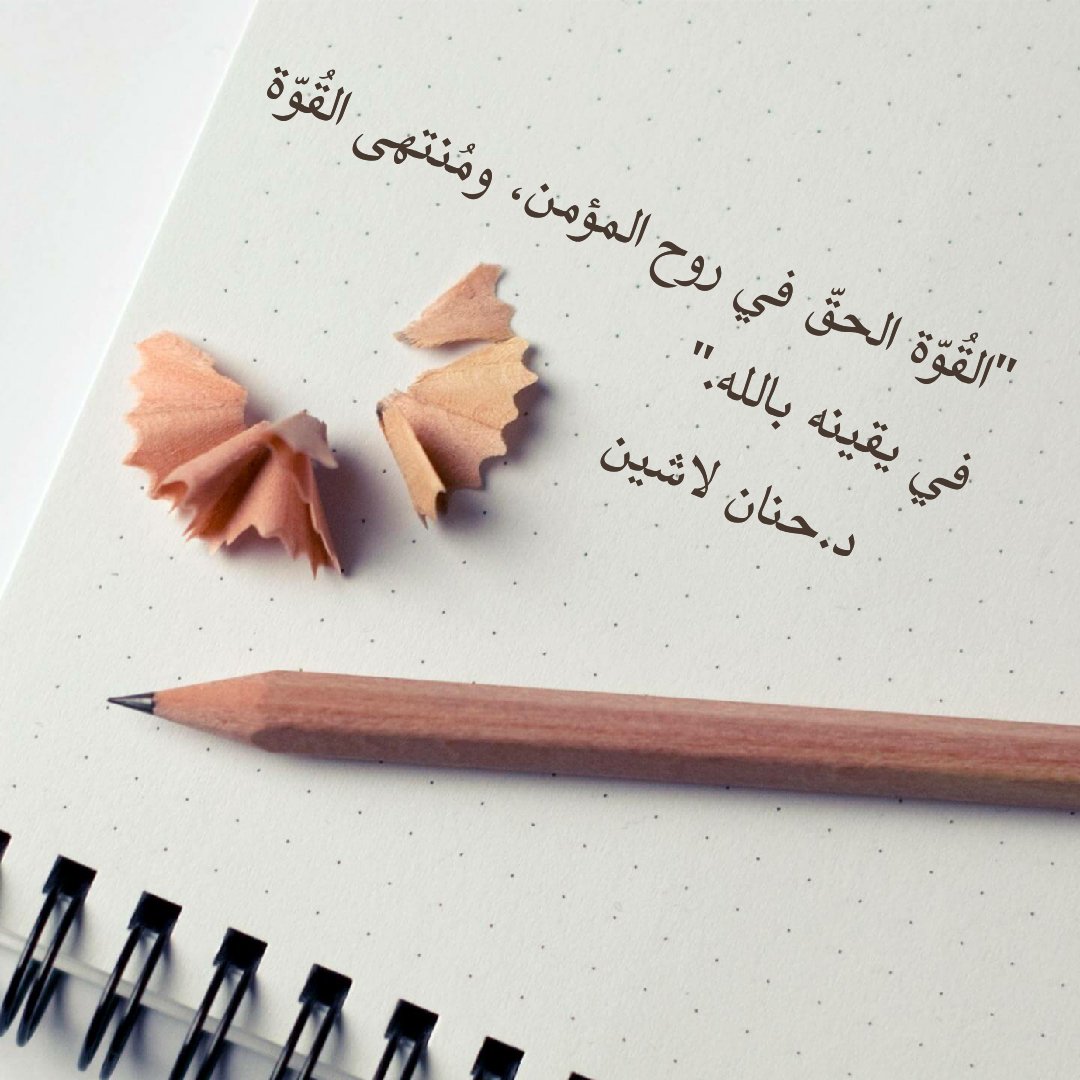 "القُوّة الحقّ في روح المؤمن، ومُنتهى القُوّة
في يقينه بالله."
د.حنان لاشين